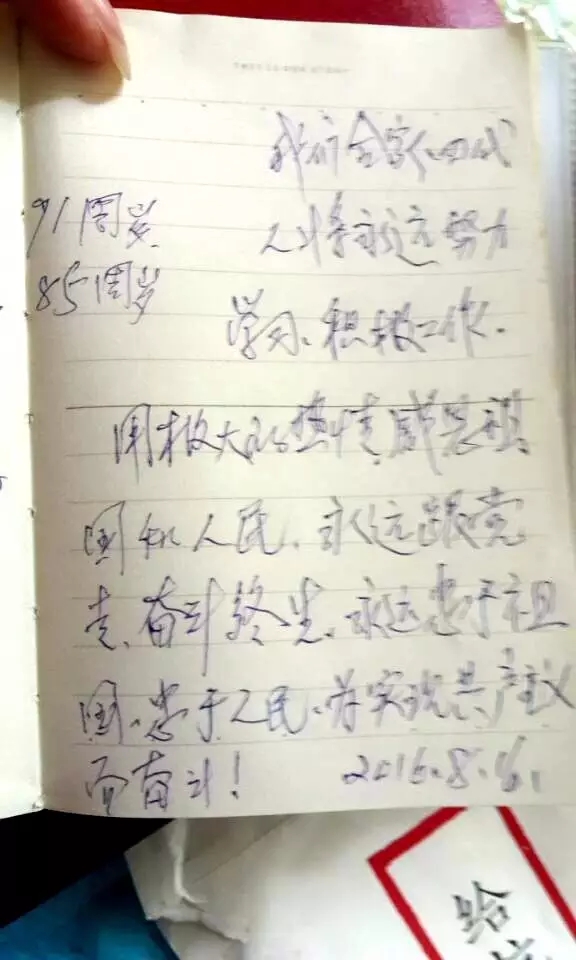 我们全家四代
91周岁
人将永远努力
85周岁
学习、积极工作.
用极大的热情感恩祖
国和人民、永远跟党
走、奋斗终生、永远忠于祖
国、忠于人民、为实现共产主义
而奋斗! 2016.8.6.
给